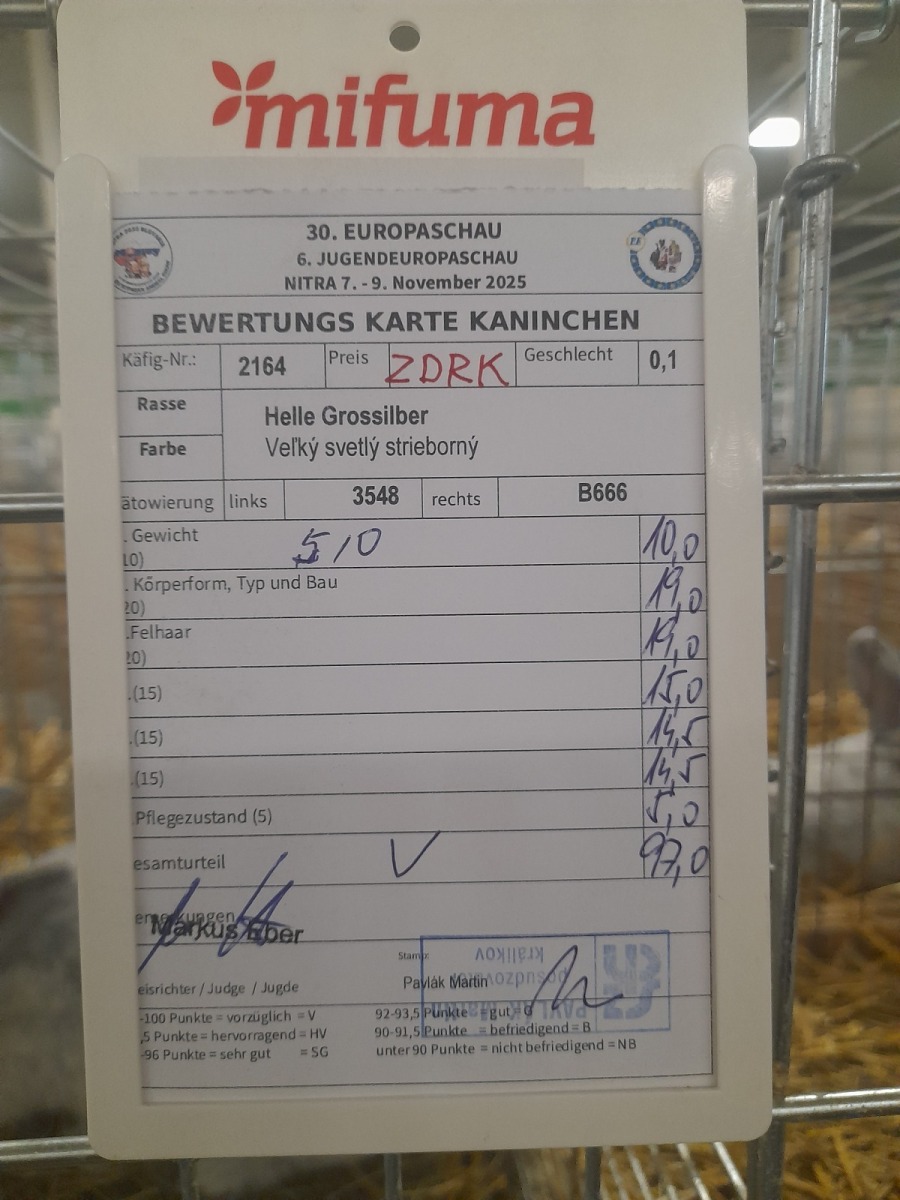 mifuma
30. EUROPASCHAU
6. JUGENDEUROPASCHAU
NITRA 7. - 9. November 2025
BEWERTUNGS KARTE KANINCHEN
Käfig-Nr.: 2164 Preis ZDRK Geschlecht 0,1
Rasse Helle Grossilber
Farbe Veľký svetlý strieborný
ätowierung links 3548 rechts B666
. Gewicht 5,0 10,0
10)
. Körperform, Typ und Bau 19,0
20)
.Felhaar 19,0
20)
.(15) 15,0
.(15) 14,5
.(15) 14,5
Pflegezustand (5) 5,0
esamturteil V 97,0
emerkungen
Markus Eber
Stamp:
králikov
posudzovateľ
Pavlák Martin
eisrichter / Judge / Jugde
-100 Punkte = vorzüglich = V 92-93,5 Punkte = gut = G
,5 Punkte = hervorragend = HV 90-91,5 Punkte = befriedigend = B
-96 Punkte = sehr gut = SG unter 90 Punkte = nicht befriedigend = NB